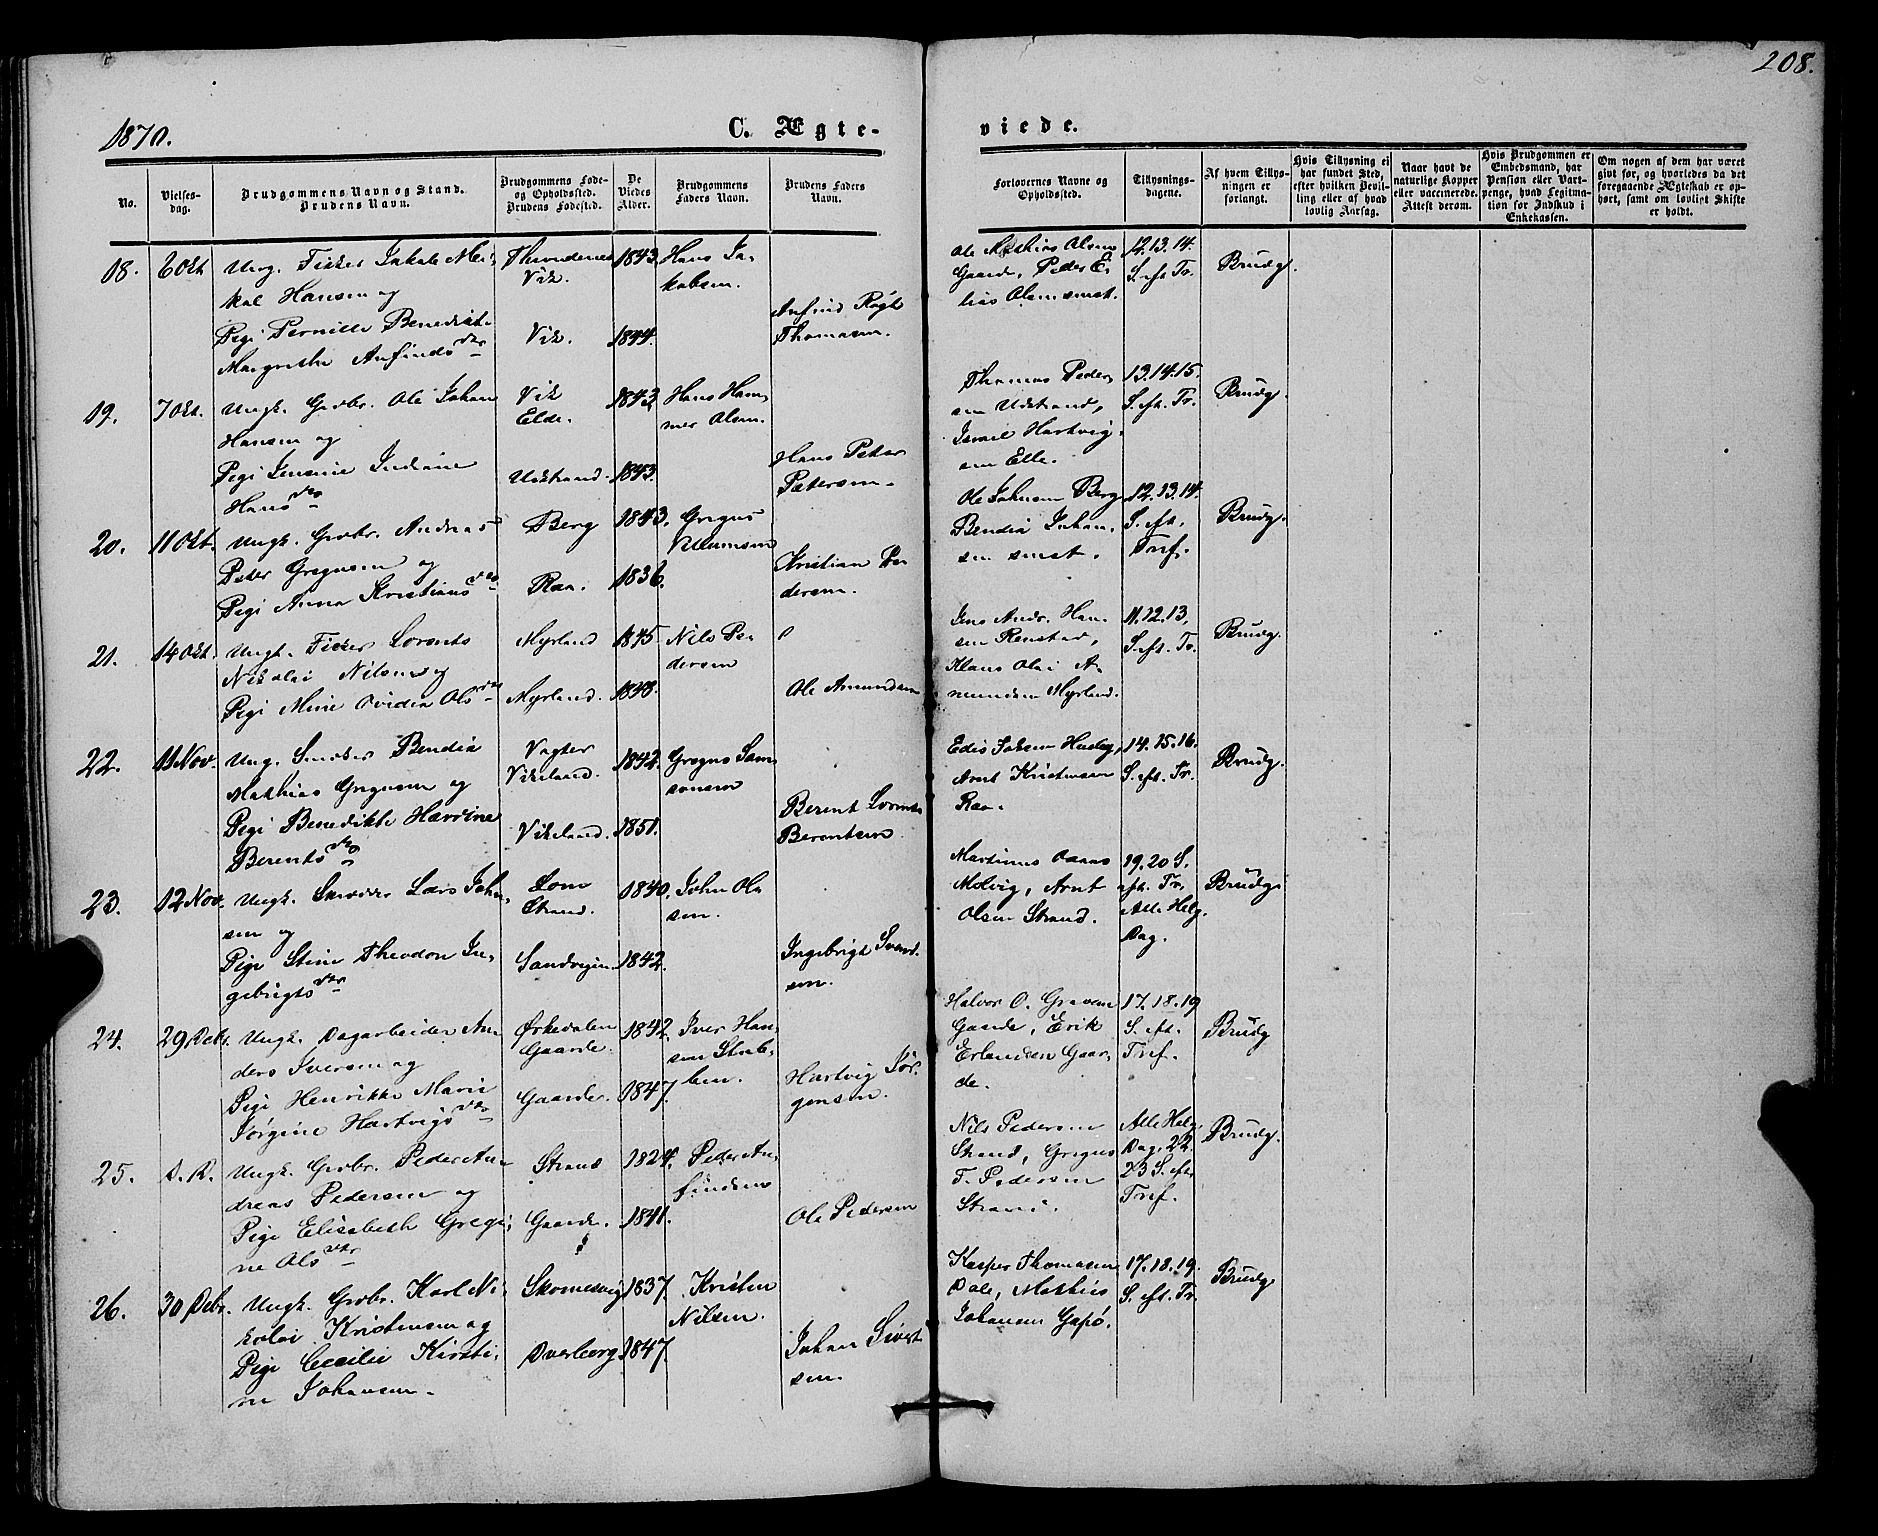 208.
1870.
C. Ægte-
viede.
No.
Vielses-
dag.
Brudgommens Navn og Stand.
Brudens Navn.
Brudgommens Føde-
og Opholdssted.
Brudens Fødested.
De
Viedes
Alder.
Brudgommens
Faders Navn.
Brudens Faders
Navn.
Forlovernes Navne og
Opholdssted.
Tillysnings-
dagene.
Af hvem Tillys-
ningen er
forlangt.
Hvis Tillysning ei
har fundet Sted,
efter hvilken Bevil-
ling eller af hvad
lovlig Aarsag.
Naar havt de
naturlige Kopper
eller vaccinerede.
Attest derom.
Hvis Brudgommen er
Embedsmand, har
Pension eller Vart-
penge, hvad Legitima-
tion for Indskud i
Enkekassen.
Om nogen af dem har været
givt før, og hvorledes da det
foregaaende Ægteskab er op-
hørt, samt om lovligt Skifte
er holdt.
18.
6 Okt
Ung. Fisker Jakob Mei-
kal Hansen og
Pige Pernille Benedikte
Margrethe Anfinds dtr
Throndenes
Vik.
Vik.
1843.
1844.
Hans Ja-
kobsen.
Anfind Røgh
Thomasen.
Ole Mathias Olsen
Gaarde, Peder E-
lias Olsen smst.
12. 13. 14.
S. eft. Tr.
Brudg.
19.
7 Okt.
Ungk. Grbr. Ole Johan
Hansen og
Pige Jensine Indiane
Hans dtr
Vik
Elde.
Udstrand.
1843
1843.
Hans Ham-
mer Olsen.
Hans Peter
Petersen.
Thomas Peder-
sen Udstrand,
Ismail Hartvig-
sen Elle.
13. 14. 15.
S. eft. Tr.
Brudg.
20.
11 Okt.
Ungk. Grbr. Andreas
Peder Gregusen og
Pige Anna Kristians dtr
Berg
Raa.
1843.
1836.
Gregus
Villumsen
Kristian Pe-
dersen.
Ole Johnsen Berg
Bendix Johan-
sen smst.
12. 13. 14.
S. eft.
Tref.
Brudg.
21.
14 Okt.
Ungk. Fisker Lorents
Nikolai Nilsen og
Pige Mine Ovidia Ols dtr
Myrland
Myrland.
1845
1848.
Nils Pe-
dersen
Ole Amundsen
Jens Andr. Han-
sen Renstad,
Klaus Olai A-
mundsen Myrland.
11. 12. 13.
S. eft. Tr.
Brudg.
22.
11 Nov.
Ung. Smeker Bendix
Mathias Gregusen og
Pige Benedikte Havrine
Berents dtr
Vagter
Vikeland.
Vikeland.
1842.
1851.
Gregus Sam-
sonsen
Berent Lorents
Berentsen
Arnt Kristensen
Raa.
14. 15. 16.
S. eft. Tr.
Brudg.
23.
12 Nov.
Ungk. Lars Joh-
sen og
Pige Stine Theodora In-
gebrigts dtr
Lom
Strand.
Sandvejen
1840.
1842.
John Ol-
sen.
Ingebrigt Svend-
sen.
Martinus
Molvig, Arnt
Olsen Strand.
19. 20 S.
eft. Tr.
Alle Helg.
Dag.
Brudg
24.
29 Debr.
Ungk. Dagarbeider An-
ders Iversen og
Pige Henrikke Marie
Jørgine Hartvigs dtr
Ørkedalen
Gaarde.
Gaarde.
1842.
1847.
Iver Han-
sen Steb-
ben.
Hartvig Jør-
gensen.
Halvor O. Gravem
Gaarde, Erik
Erlandsen Gaar-
de.
17. 18. 19
S. eft.
Tref.
Brudg
25.
D. D.
Ungk. Grbr. Peder An-
dreas Pedersen og
Pige Elisabeth Gregi-
ne Ols dtr
Strand
Gaarde.
1824.
1841.
Peder An-
findsen
Ole Pedersen
Nils Pedersen
Strand, Gregus
T. Pedersen
Strand.
Alle Helg.
Dag. 22.
23 S. eft.
Tref.
Brudg.
26.
30 Debr.
Ungk. Grbr. Karl Ni-
kolai Kristensen og
Pige Cecilie Kirsti-
ne Johansen.
Skomesvig
Dverberg
1837.
1847.
Kristen
Nilsen.
Johan Sivert-
sen.
Kasper Thomasen
Dale, Mathias
Johansen Gapø.
17. 18. 19.
S. eft. Tr.
Brudg